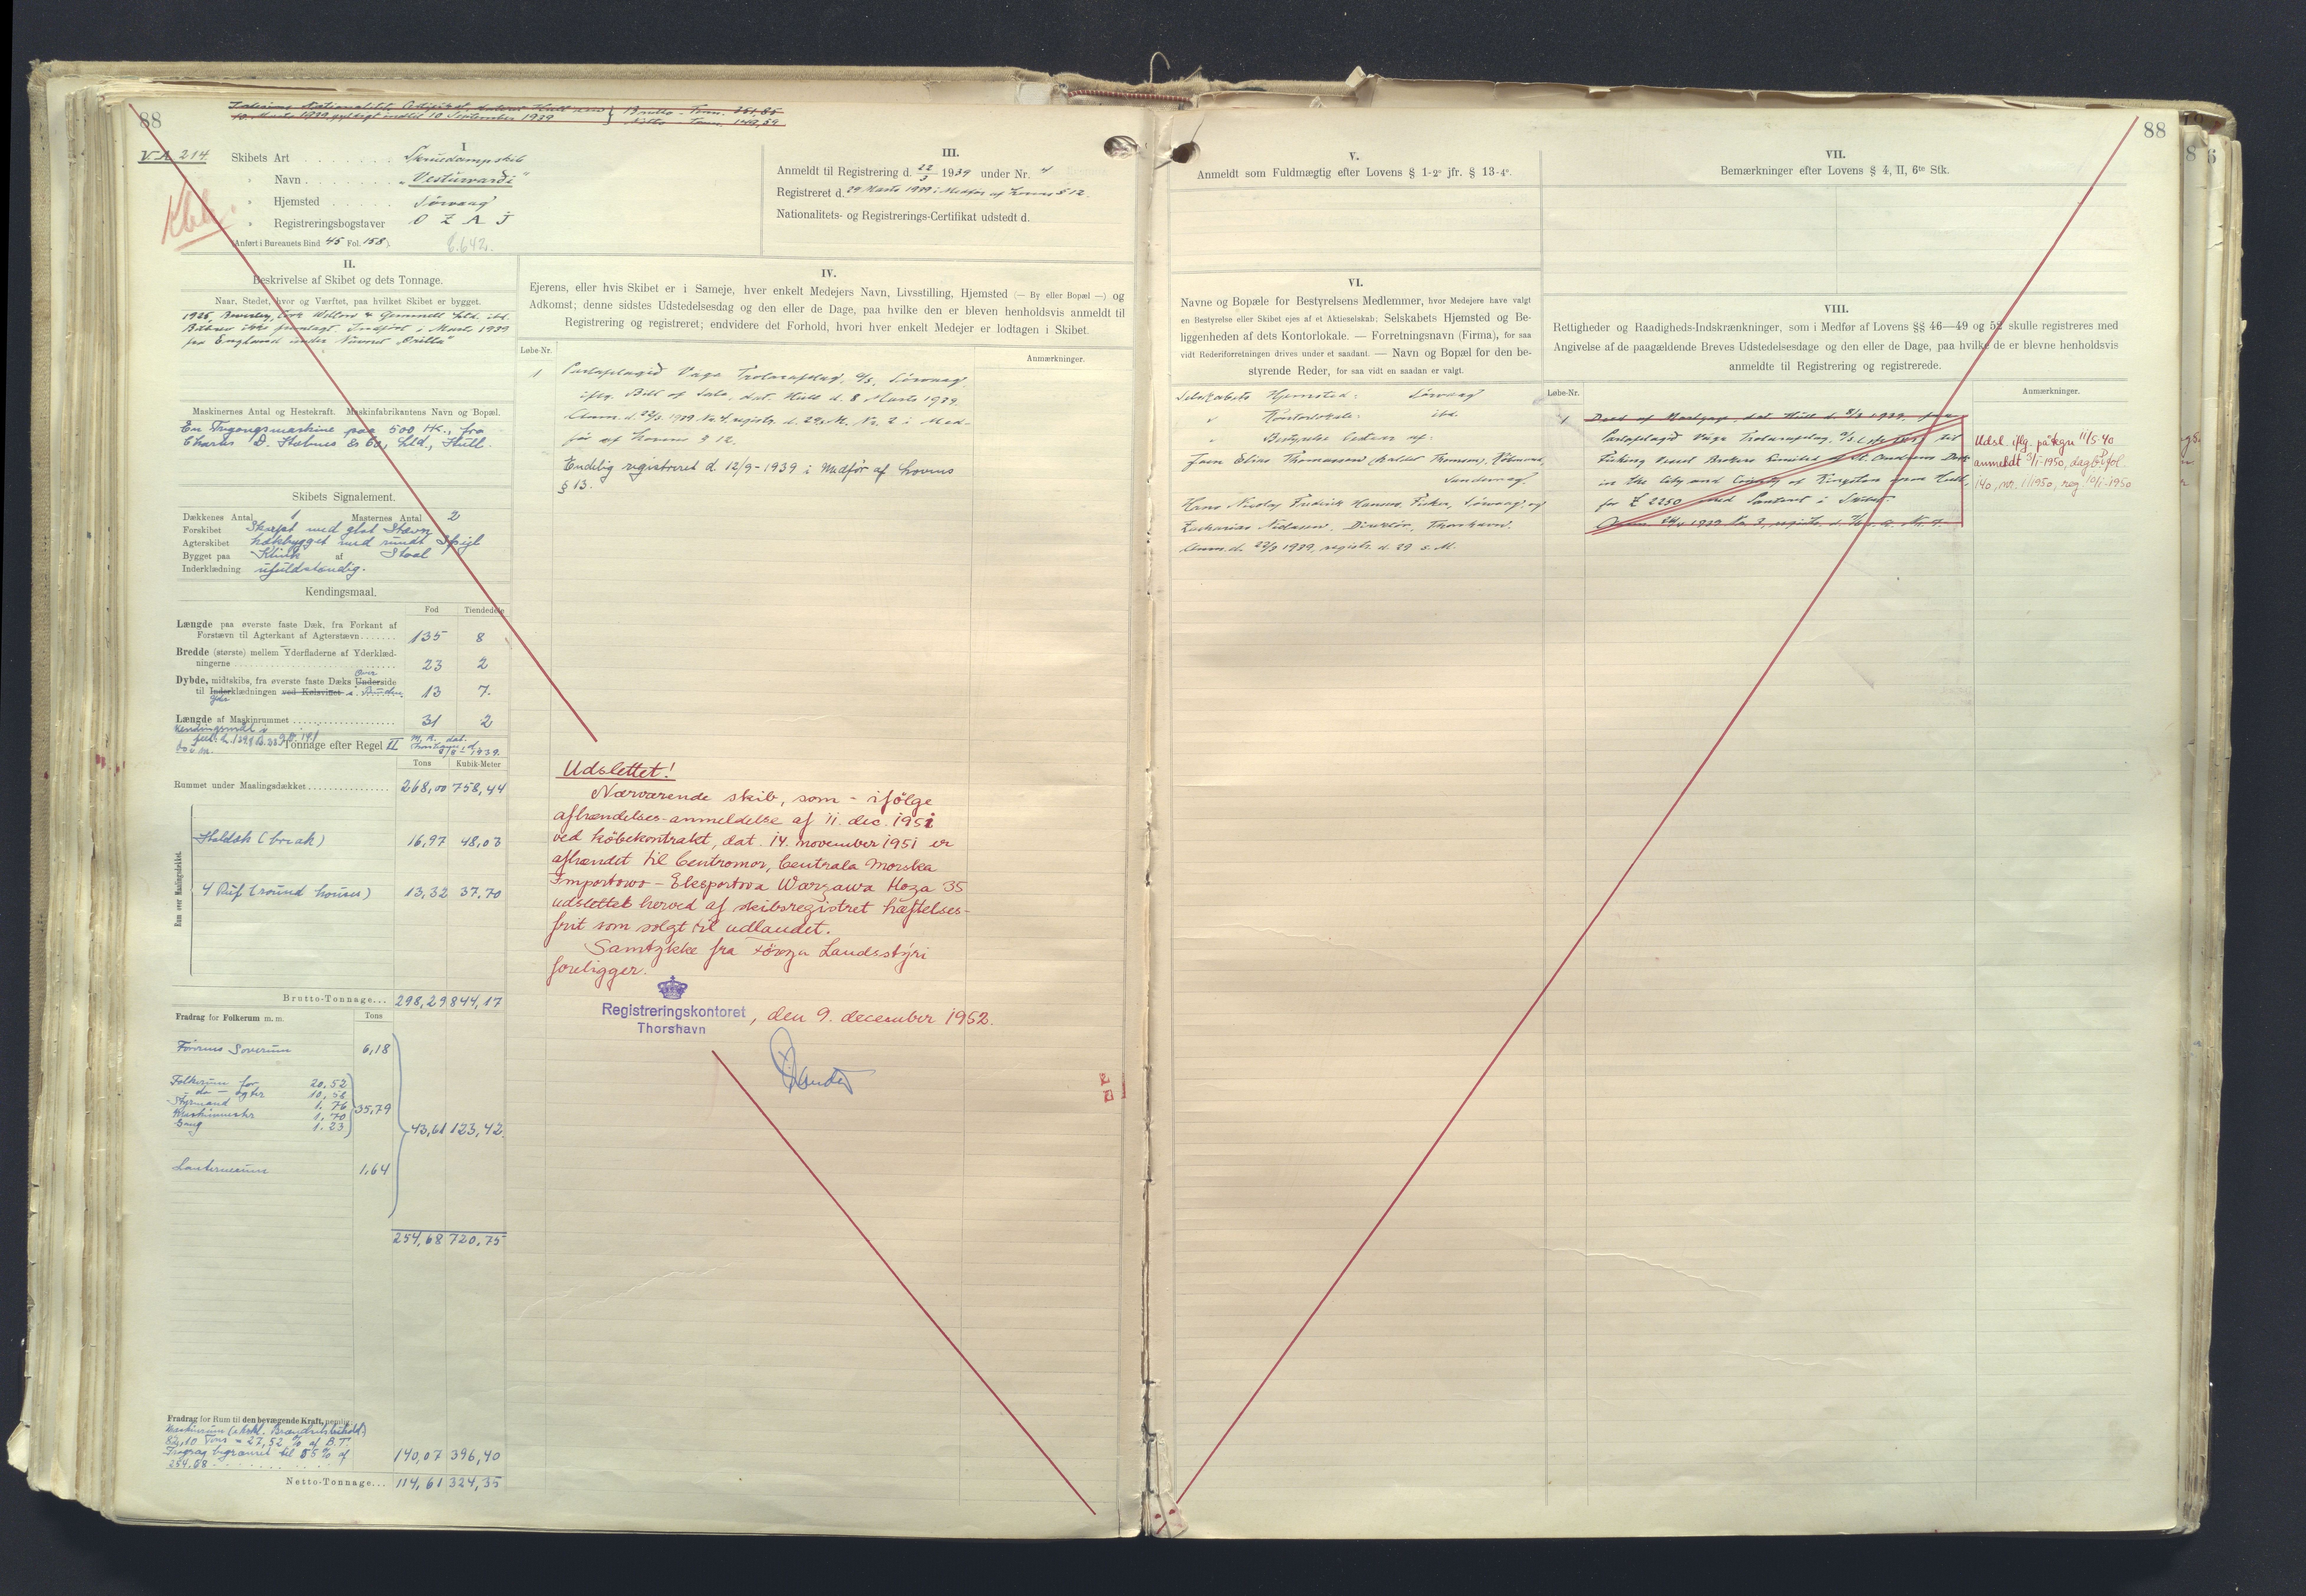 88
Brutto - Tons. 351,85
10. Marts 1939, gyldigt indtil 10 September 1939
Netto - Tons. 149,59
VA 214.
I
Skibets Art . . . . . . . Skruedampskib
" Navn . . . . . . . . „Vesturvardi"
" Hjemsted . . . . . Sørvaag
" Registreringsbogstaver O Z A J
(Anført i Bureauets Bind 45 Fol. 158).
6.642.
II.
Beskrivelse af Skibet og dets Tonnage.
Naar, Stedet, hvor og Værftet, paa hvilket Skibet er bygget.
Bilbrev ikke fremlagt. Indført i Marts 1939
fra England under Navnet
Maskinernes Antal og Hestekraft. Maskinfabrikantens Navn og Bopæl.
En Tregangsmaskine paa 500 HK., fra
Charles D. Holmes & Co, Ltd., Hull.
Skibets Signalement.
Dækkenes Antal 1 Masternes Antal 2
Forskibet Skarpt med glat Stævn
Agterskibet hækbygget med rundt Spejl
Bygget paa Klink af Staal
Inderklædning ufuldstændig.
Kendingsmaal.
Fod Tiendedele
Længde paa øverste faste Dæk, fra Forkant af
Forstævn til Agterkant af Agterstævn . . . . . . . 135 8
Bredde (største) mellem Yderfladerne af Yderklæd-
ningerne . . . . . 23 2
Over
Dybde, midtskibs, fra øverste faste Dæks Underside
til Inderklædningen ved Kølsvinet i Bunden 13 7.
Længde af Maskinrummet . . . . . 31 2
Tonnage efter Regel II
Tons Kubik-Meter
Rummet under Maalingsdækket . . . . . 268,00 758,44
Rum over Maalingsdækket.
Halvdæk (break) 16,97 48,03
4 Ruf (round houses) 13,32 37,70
Brutto-Tonnage... 298,29 844,17
Fradrag for Folkerum m. m. Tons
Førerens Soverum 6,18
Folkerum for 20.52
do — agter
Styrmand 1.76
1.70
Gang 1.23
35,79
43,61 123,42
Lanternerum 1,64
254,68 720,75
Fradrag for Rum til den bevægende Kraft, nemlig:
82,10 Tons = 27,52 % af B.T.
Fradrag begrænset til 55 % af
254.68 . . . . . 140,07 396,40
Netto-Tonnage... 114,61 324,35
III.
Anmeldt til Registrering d. 22/3 1939 under Nr. 4
Registreret d. 29 Marts 1939 i Medfør af Lovens § 12.
Nationalitets- og Registrerings-Certifikat udstedt d.
IV.
Ejerens, eller hvis Skibet er i Sameje, hver enkelt Medejers Navn, Livsstilling, Hjemsted (— By eller Bopæl —) og
Adkomst; denne sidstes Udstedelsesdag og den eller de Dage, paa hvilke den er bleven henholdsvis anmeldt til
Registrering og registreret; endvidere det Forhold, hvori hver enkelt Medejer er lodtagen i Skibet.
Løbe-Nr. Anmærkninger.
1 Partafelagið Vága Trolarafelag, a/s, Sørvaag
iflg. Bill of Sale, dat. Hull d. 8 Marts 1939.
Anm. d. 22/3 1939 Nr. 4, registr. d. 29 s. M. Nr. 2 i Med-
før af Lovens § 12.
Endelig registreret d. 12/9-1939 i Medfør af Lovens
§ 13.
Udslettet!
Nærværende skib, som - ifölge
afhændelses-anmeldelse af 11. dec. 1951
ved köbekontrakt, dat. 14. november 1951 er
afhændet til Centromor, Centrala Morska
Importowo - Eksportowa Warzawa Hoza 35
udslettet herved af skibsregistret hæftelses-
frit som solgt til udlandet.
Samtykke fra Föroya Landsstýri
foreligger.
Registreringskontoret
Thorshavn
, den 9. december 1952.
V.
Anmeldt som Fuldmægtig efter Lovens § 1-2° jfr. § 13-4°.
VI.
Navne og Bopæle for Bestyrelsens Medlemmer, hvor Medejere have valgt
en Bestyrelse eller Skibet ejes af et Aktieselskab; Selskabets Hjemsted og Be-
liggenheden af dets Kontorlokale. — Forretningsnavn (Firma), for saa
vidt Rederiforretningen drives under et saadant. — Navn og Bopæl for den be-
styrende Reder, for saa vidt en saadan er valgt.
Selskabets Hjemsted: Sørvaag
" Kontorlokale: ibd.
" Bestyrelse bestaar af:
Joen Elias Thomassen (kaldet Thomsen), Købmand,
Sandevaag.
Hans Nicolaj Fredrik Hansen, Fisker, Sørvaag, og
Zacharias Nielassen, Direktør, Thorshavn.
Anm. d. 22/3 1939, registr. d. 29 s. M.
VII.
Bemærkninger efter Lovens § 4, II, 6te Stk.
88
VIII.
Rettigheder og Raadigheds-Indskrænkninger, som i Medfør af Lovens §§ 46—49 og 52 skulle registreres med
Angivelse af de paagældende Breves Udstedelsesdage og den eller de Dage, paa hvilke de er blevne henholdsvis
anmeldte til Registrering og registrerede.
Løbe-Nr. Anmærkninger.
1 Deed of Mortgage, dat. Hull d. 8/3 1939, fra
Partafelagið Vága Trolarafelag, a/s til
Fishing Vessel Brokers Limited of St. Andrews Dock
in the City and County of Kingston upon Hull,
for £ 2250 med Panteret i Skibet.
Udsl. iflg. påtegn 11/5-40
anmeldt 3/1-1950, dagb. I fol.
140, nr. 1/1950, reg. 10/1-1950